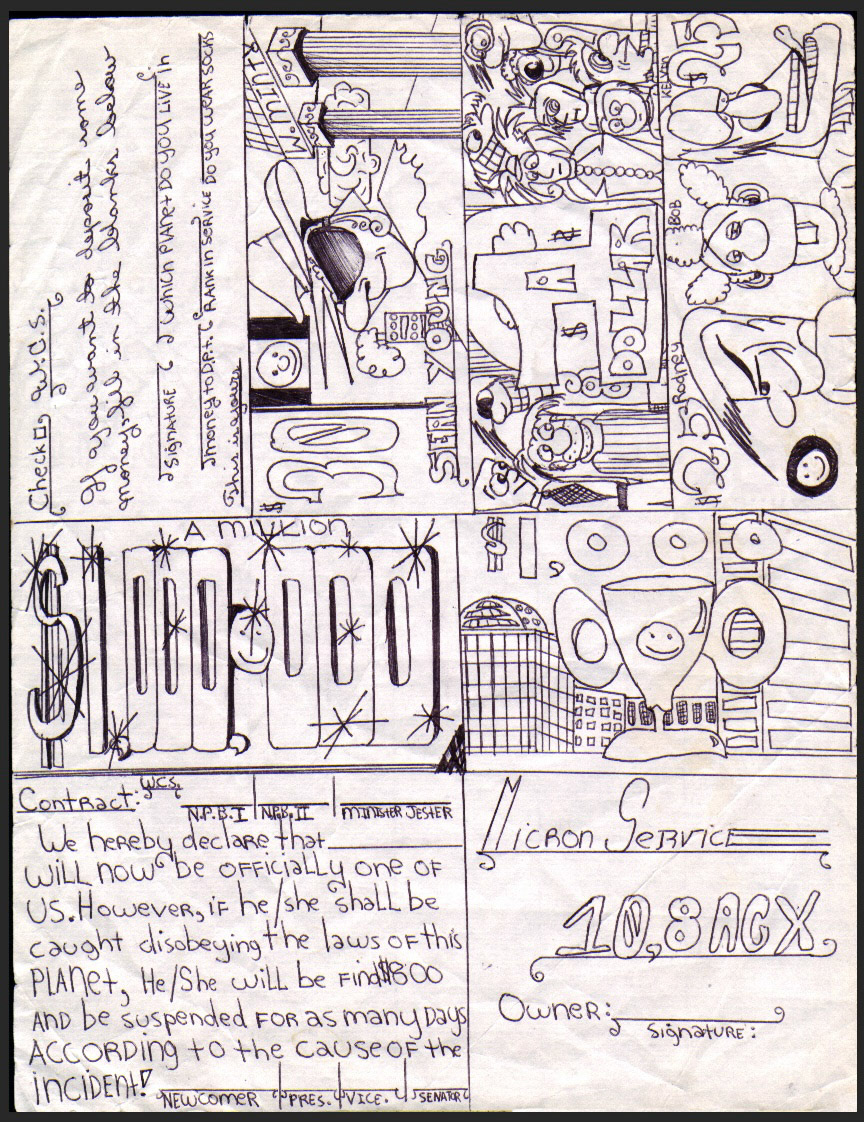 Check □, W.C.S.
If you want to deposit some
money, fill in the blanks below
Signature
Which PlANet DO yOU LIVE in
money to D.P.t.
RANK in SERVICE
DO yOU WEAR SOCKS
This is yours
W. MINT
$30
SEAN YOUNG.
$
A
$
DOLLAR
KELVON
$25
BOB
Rodney
$25
A MILLION
$1,000,000
$1,000
Contract: WCS,
N.P.B.I
N.P.B.II
MINISTER JESTER
We hereby declare that
WILL now be OFFICIALLY one OF
US. However, iF he/she shall be
caught disobeying the laws OF this
PLANet, He/She will be Find $800
AND be suspended FOR as many Days
ACCORDING to the cause OF the
inciDENt!
NEWCOMER
PRES.
VICE.
SENATOR
Micron Service
10,8 AGX
Owner:
Signature: